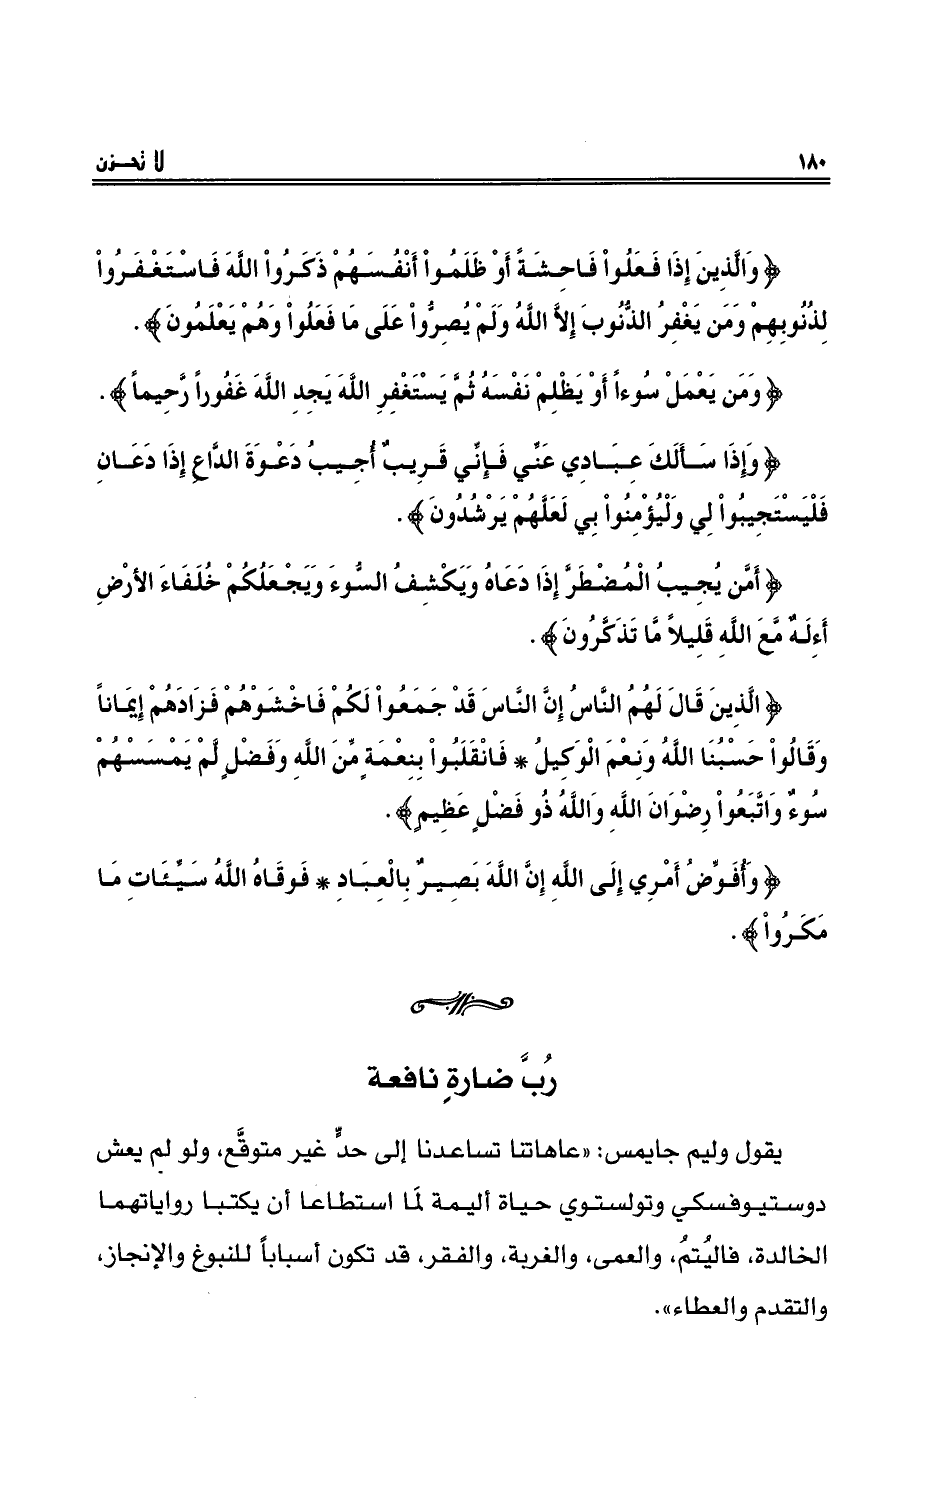 ١٨٠ لا تحـزن
﴿وَالَّذِينَ إِذَا فَعَلُواْ فَاحِشَةً أَوْ ظَلَمُواْ أَنْفُسَهُمْ ذَكَرُواْ اللَّهَ فَاسْتَغْفَرُواْ
لِذُنُوبِهِمْ وَمَن يَغْفِرُ الذُّنُوبَ إِلاَّ اللَّهُ وَلَمْ يُصِرُّواْ عَلَى مَا فَعَلُواْ وَهُمْ يَعْلَمُونَ﴾.
﴿وَمَن يَعْمَلْ سُوءاً أَوْ يَظْلِمْ نَفْسَهُ ثُمَّ يَسْتَغْفِرِ اللَّهَ يَجِدِ اللَّهَ غَفُوراً رَّحِيماً﴾.
﴿وَإِذَا سَأَلَكَ عِبَادِي عَنِّي فَإِنِّي قَرِيبٌ أُجِيبُ دَعْوَةَ الدَّاعِ إِذَا دَعَانِ
فَلْيَسْتَجِيبُواْ لِي وَلْيُؤْمِنُواْ بِي لَعَلَّهُمْ يَرْشُدُونَ﴾.
﴿أَمَّن يُجِيبُ الْمُضْطَرَّ إِذَا دَعَاهُ وَيَكْشِفُ السُّوءَ وَيَجْعَلُكُمْ خُلَفَاءَ الأَرْضِ
أَءِلَهٌ مَّعَ اللَّهِ قَلِيلاً مَّا تَذَكَّرُونَ﴾.
﴿الَّذِينَ قَالَ لَهُمُ النَّاسُ إِنَّ النَّاسَ قَدْ جَمَعُواْ لَكُمْ فَاخْشَوْهُمْ فَزَادَهُمْ إِيمَاناً
وَقَالُواْ حَسْبُنَا اللَّهُ وَنِعْمَ الْوَكِيلُ * فَانْقَلَبُواْ بِنِعْمَةٍ مِّنَ اللَّهِ وَفَضْلٍ لَّمْ يَمْسَسْهُمْ
سُوءٌ وَاتَّبَعُواْ رِضْوَانَ اللَّهِ وَاللَّهُ ذُو فَضْلٍ عَظِيمٍ﴾.
﴿وَأُفَوِّضُ أَمْرِي إِلَى اللَّهِ إِنَّ اللَّهَ بَصِيرٌ بِالْعِبَادِ * فَوقَاهُ اللَّهُ سَيِّئَاتِ مَا
مَكَرُواْ﴾.
رُبَّ ضارةٍ نافعة
يقول وليم جايمس: «عاهاتنا تساعدنا إلى حدٍّ غير متوقَّع، ولو لم يعش
دوستيوفسكي وتولستوي حياة أليمة لمَا استطاعا أن يكتبا رواياتهما
الخالدة، فاليُتمُ، والعمى، والغربة، والفقر، قد تكون أسباباً للنبوغ والإنجاز،
والتقدم والعطاء».